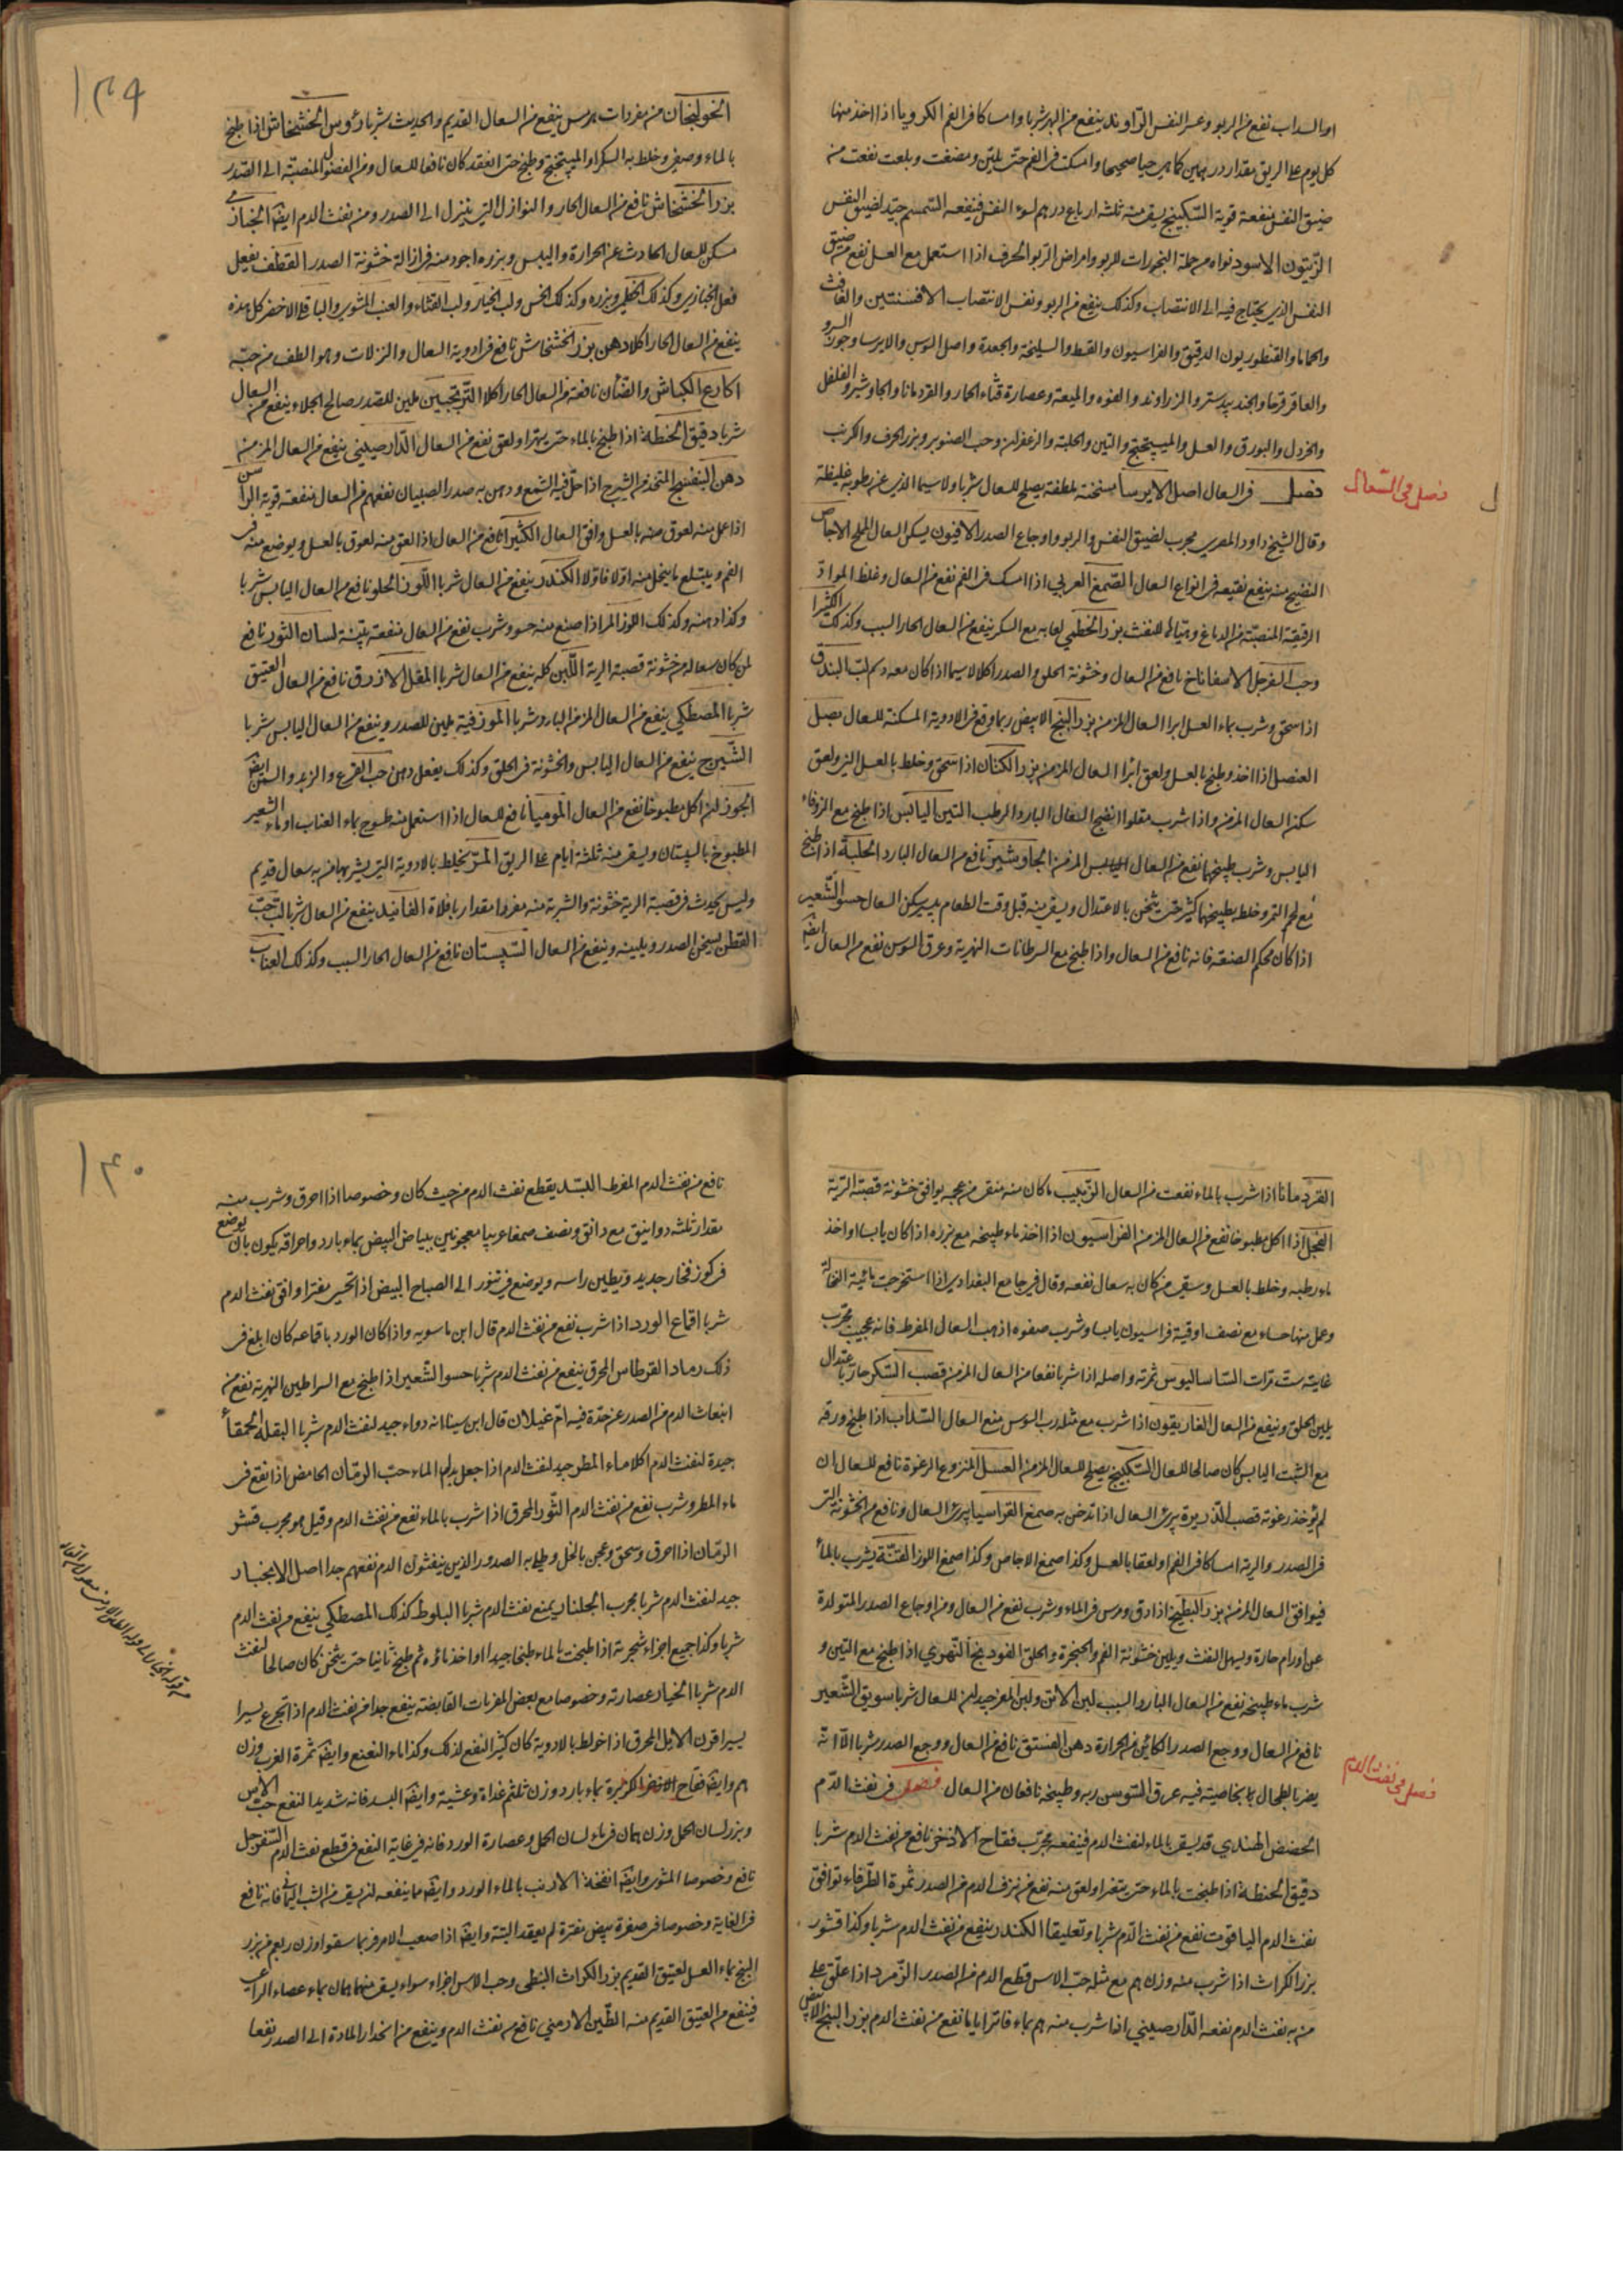 او بالسداب نفع من الربو وعسر النفس الراوند ينفع من البهر شربا وامساكا في الفم الكرويا اذا اخذ منها
كل يوم على الريق مقدار درهمين كما هي حبا صحيحا وامسكت في الفم حتى تلين ومضغت وبلعت نفعت من
ضيق النفس منفعة قوية السكبينج يسقى منه ثلثة ارباع درهم لسوء النفس فينفعه السمسم جيد لضيق النفس
الزيتون الاسود نواه من جملة البخورات للربو وامراض الربو الحرف اذا استعمل مع العسل نفع من ضيق
النفس الذي يحتاج فيه الى الانتصاب وكذلك ينفع من الربو ونفس الانتصاب الافسنتين والغافث
والحماما والقنطوريون الدقيق والفراسيون والقسط والسليخة والجعدة واصل السوس والايرسا وجوز السرو
والعاقرقرحا والجندبيدستر والزراوند والفوه والميعة وعصارة قثاء الحمار والقردمانا والجاوشير والفلفل
والخردل والبورق والعسل والميبختج والتين والحلبة والزعفران وحب الصنوبر وبزر الحرف والكرنب
فصل في السعال اصل الايرسا مسخنة ملطفة يصلح للسعال شربا ولا سيما الذي عن رطوبة غليظة
فصل في السعال
وقال الشيخ داود المصري مجرب لضيق النفس والربو واوجاع الصدر الافيون يسكن السعال الملح الاجاص
النضيج منه ينفع نقيعه في انواع السعال الصمغ العربي اذا امسك في الفم نفع من السعال وغلظ المواد
الرقيقة المنصبة من الدماغ وهيأها للنفث بزر الخطمي لعابه مع السكر ينفع من السعال الحار السبب وكذلك الكثيرا
وحب السفرجل الاسفاناخ نافع من السعال وخشونة الحلق والصدر اكلا لاسيما اذا كان معه دسم لب البندق
اذا سحق وشرب بماء العسل ابرا السعال المزمن بزر البنج الابيض ربما وقع في الادوية المسكنة للسعال بصل
العنصل اذا اخذ وطبخ بالعسل ولعق ابرا السعال المزمن بزر الكتان اذا سحق وخلط بالعسل ولعق
سكن السعال المزمن واذا شرب مقلوا انضج السعال البارد الرطب التين اليابس اذا طبخ مع الزوفاء
اليابس وشرب طبيخهما نفع من السعال اليابس المزمن الجاوشير نافع من السعال البارد الحلبة اذا طبخ
مع لحم التمر وخلط بطبيخهما كثير حتى يثخن بالاعتدال ويسقى منه قبل وقت الطعام يسكن السعال حسو الشعير
اذا كان محكم الصنعة فانه نافع من السعال واذا طبخ مع السرطانات النهرية وعرق السوس نفع من السعال ايضا
١٣٩
الخولنجان من مفردات هرمس ينفع من السعال القديم والحديث شربا رؤوس الخشخاش اذا طبخ
بالماء وصفي وخلط به السكر او الميبختج وطبخ حتى انعقد كان نافعا للسعال ومن الفضول المنصبة الى الصدر
بزر الخشخاش نافع من السعال الحار والنوازل التي ينزل الى الصدر ومن نفث الدم ايضا الخبازى
مسكن للسعال الحادث عن الحرارة واليبس وبزره اجود منه في ازالة خشونة الصدر القطف يفعل
فعل الخبازي وكذلك الخطمي وبزره وكذلك الخس ولب الخيار ولب القثاء والعنب المشوي والباقلا الاخضر كل هذه
ينفع من السعال الحار اكلا دهن بزر الخشخاش نافع في ادوية السعال والنزلات وهو الطف من حبه
اكارع الكباش والضأن نافعة من السعال الحار اكلا الترنجبين ملين للصدر صالح الجلاء ينفع من السعال
شربا دقيق الحنطة اذا طبخ بالماء حتى يتهرا ولعق نفع من السعال الدارصيني ينفع من السعال المزمن
دهن البنفسج المتخذ من الشيرج اذا حل فيه الشمع ودهن به صدر الصبيان نفعهم من السعال منفعة قوية الراسن
اذا عمل منه لعوق منه بالعسل وافق السعال الكثيرا نافع من السعال اذا لعق منه لعوق بالعسل ويوضع منه في
الفم ويبتلع ما ينحل منه اولا فاولا الكندر ينفع من السعال شربا اللوز الحلو نافع من السعال اليابس شربا
وكذا دهنه وكذلك اللوز المر اذا صنع منه حسو وشرب نفع من السعال منفعة بينة لسان الثور نافع
لمن كان سعاله من خشونة قصبة الرية اللبن كله ينفع من السعال شربا المقل الازرق نافع من السعال العتيق
شربا المصطكي ينفع من السعال المزمن البارد شربا الموز فيه تليين للصدر وينفع من السعال اليابس شربا
الشيرج ينفع من السعال اليابس والخشونة في الحلق وكذلك يفعل دهن حب القرع والزبد والسمن ايضا
الجوز لمن اكل مطبوخا نفع من السعال الموميا نافع للسعال اذا استعمل منه طسوج بماء العناب او ماء الشعير
المطبوخ بالسبستان ويسقى منه ثلثة ايام على الريق المر يخلط بالادوية التي يشربها من به سعال قديم
وليس يحدث في قصبة الرية خشونة والشربة منه مفردا مقدار باقلاة الفانيد ينفع من السعال شربا لب حب
القطن يسخن الصدر ويلينه وينفع من السعال السبستان نافع من السعال الحار السبب وكذلك العناب
القردمانا اذا شرب بالماء نفعت من السعال الزبيب ما كان منه منقى من عجمه يوافق خشونة قصبة الرية
الفجل اذا اكل مطبوخا نفع من السعال المزمن الفراسيون اذا اخذ ماء طبيخه مع بزره اذا كان يابسا او اخذ
ماء رطبه وخلط بالعسل وسقي من كان به سعال نفعه وقال في جامع البغدادي اذا استخرجت مائية النخالة
وعمل منها حساء مع نصف اوقية فراسيون يابسا وشرب صفوه اذهب السعال المفرط فانه عجيب مجرب
غايته ست مرات الساساليوس ثمرته واصله اذا شربا نفعا من السعال المزمن قصب السكر حار باعتدال
يلين الحلق وينفع من السعال الغاريقون اذا شرب مع مثله رب السوس منع السعال السداب اذا طبخ ورقه
مع الشبت اليابس كان صالحا للسعال السكبينج يصلح للسعال المزمن العسل المنزوع الرغوة نافع للسعال ان
لم يؤخذ رغوته قصب الذريرة يبرئ السعال اذا تدخن به صمغ القراسيا يبرئ السعال ونافع من الخشونة التي
في الصدر والرية امساكا في الفم او لعقا بالعسل وكذا صمغ الاجاص وكذا صمغ اللوز القنة يشرب بالماء
فيوافق السعال المزمن بزر البطيخ اذا دق ومرس في الماء وشرب نفع من السعال ومن اوجاع الصدر المتولدة
عن اورام حارة ويسهل النفث ويلين خشونة الفم والحنجرة والحلق الفودينج النهري اذا طبخ مع التين و
شرب ماء طبيخه نفع من السعال البارد السبب لبن الاتن ولبن المعز جيد ان للسعال شربا سويق الشعير
نافع من السعال ووجع الصدر الكائن من الحرارة دهن الفستق نافع من السعال ووجع الصدر شربا الا انه
يضر بالطحال بخاصية فيه عرق السوس ربه وطبيخه نافعان من السعال فصل في نفث الدم
فصل في نفث الدم
الحضض الهندي قد يسقى بالماء لنفث الدم فينفعه مجرب فقاح الاذخر نافع من نفث الدم شربا
دقيق الحنطة اذا طبخت بالماء حتى يتغرا ولعق منه نفع من نزف الدم من الصدر ثمرة الطرفاء توافق
نفث الدم الياقوت نفع من نفث الدم شربا وتعليقا الكندر ينفع من نفث الدم شربا وكذا قشور
بزر الكراث اذا شرب منه وزن هم مع مثله حب الاس قطع الدم من الصدر الزمرد اذا علق على
من به نفث الدم نفعه الدارصيني اذا شرب منه هم بماء فاتر اياما نفع من نفث الدم بزر البنج الابيض
١٤٠
نافع من نفث الدم المفرط البسد يقطع نفث الدم من حيث كان وخصوصا اذا احرق وشرب منه
مقدار ثلثة دوانيق مع دانق ونصف صمغا عربيا معجونين ببياض البيض بماء بارد واحراقه يكون بان يوضع
في كوز فخار جديد ويطين راسه ويوضع في تنور الى الصباح البيض اذا تحسى مفترا وافق نفث الدم
شربا اقماع الورد اذا شرب نفع من نفث الدم قال ابن ماسويه واذا كان الورد باقماعه كان ابلغ في
ذلك رماد القرطاس المحرق ينفع من نفث الدم شربا حسو الشعير اذا طبخ مع السراطين النهرية نفع من
انبعاث الدم من الصدر عن حدة فيه ام غيلان قال ابن سينا انه دواء جيد لنفث الدم شربا البقلة الحمقاء
جيدة لنفث الدم اكلا ماء المطر جيد لنفث الدم اذا جعل بدل الماء حب الرمان الحامض اذا نقع في
ماء المطر وشرب نفع من نفث الدم الثور المحرق اذا شرب بالماء نفع من نفث الدم وقيل هو مجرب قشر
الرمان اذا احرق وسحق وعجن بالخل وطلي به الصدور الذين ينفثون الدم نفعهم جدا اصل الانجبار
جيد لنفث الدم شربا مجرب الجلنار يمنع نفث الدم شربا البلوط كذلك المصطكي ينفع من نفث الدم
شربا وكذا جميع اجزاء شجرته اذا طبخت بالماء طبخا جيدا واخذ ماؤه ثم طبخ ثانيا حتى يثخن كان صالحا لنفث
الدم شربا الخيار عصارته وخصوصا مع بعض المغريات القابضة ينفع جدا من نفث الدم اذا تجرع يسيرا
يسيرا قرن الايل المحرق اذا خولط بالادوية كان كثير النفع لذلك وكذا ماء النعنع وايضا ثمرة الغرب وزن
هم وايضا فقاح الكزبرة بماء بارد وزن ثلثهم غداة وعشية وايضا البسد فانه شديد النفع حب الاس
وبزر لسان الحمل وزن همان في ماء لسان الحمل وعصارة الورد فانه في غاية النفع في قطع نفث الدم السفرجل
نافع وخصوصا المشوي وايضا انفخة الارنب بالماء الورد وايضا مما ينفعه ان يسقى من الشب اليماني فانه نافع
في الغاية وخصوصا في صفرة بيض مفترة لم يعقد البتة وايضا اذا صعب الامر فربما سقوا وزن ربعهم من بزر
البنج بماء العسل لعتيق القديم بزر الكراث النبطي وحب الاس اجزاء سواء يسقى منهما همان بماء عصاء الراعي
فينفع من العتيق القديم منه الطين الارمني نافع من نفث الدم وينفع من انحدار المادة الى الصدر نفعا